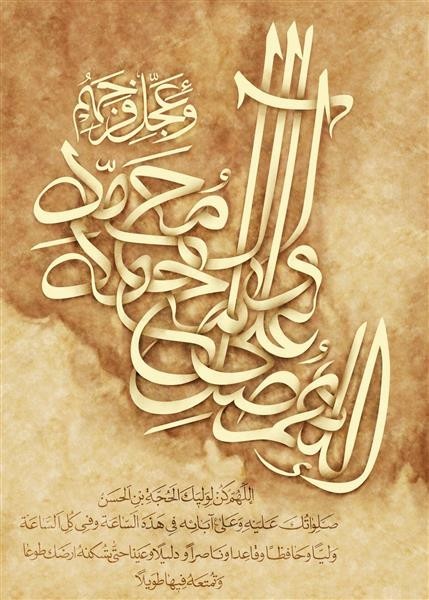 اللهم صل على محمد وآل محمد
وعجّل فرجهم
اللهم كن لوليك الحجة بن الحسن
صلواتك عليه وعلى آبائه في هذه الساعة وفي كل الساعة
وليًا وحافظًا وقاعدا وناصرًا ودليلًا وعينا حتى تسكنه ارضك طوعًا
وتمتعه فيها طويلًا